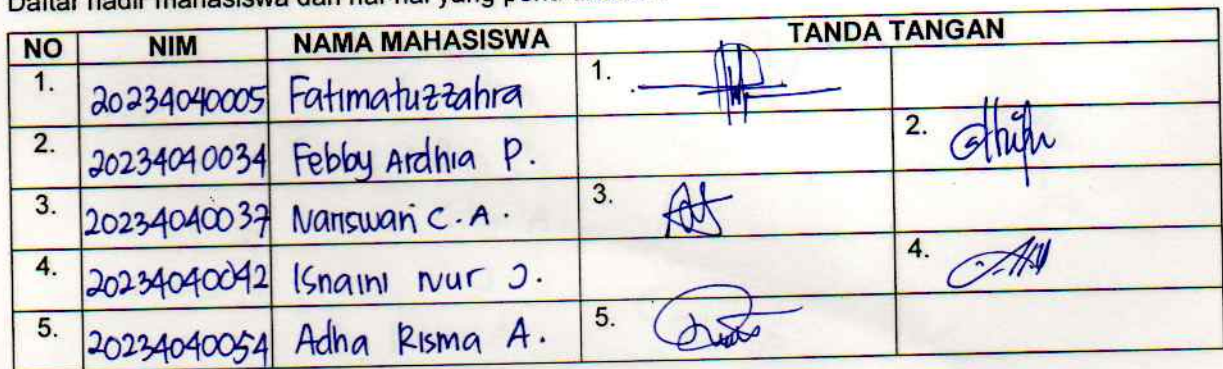 Daftar hadir mahasiswa dan hal-hal yang
NO NIM NAMA MAHASISWA TANDA TANGAN
1. 20234040005 Fatimatuzzahra 1.
2. 20234040034 Febby Ardhia P. 2.
3. 20234040037 Nariswari C.A. 3.
4. 20234040042 Isnaini Nur J. 4.
5. 20234040054 Adha Risma A. 5.